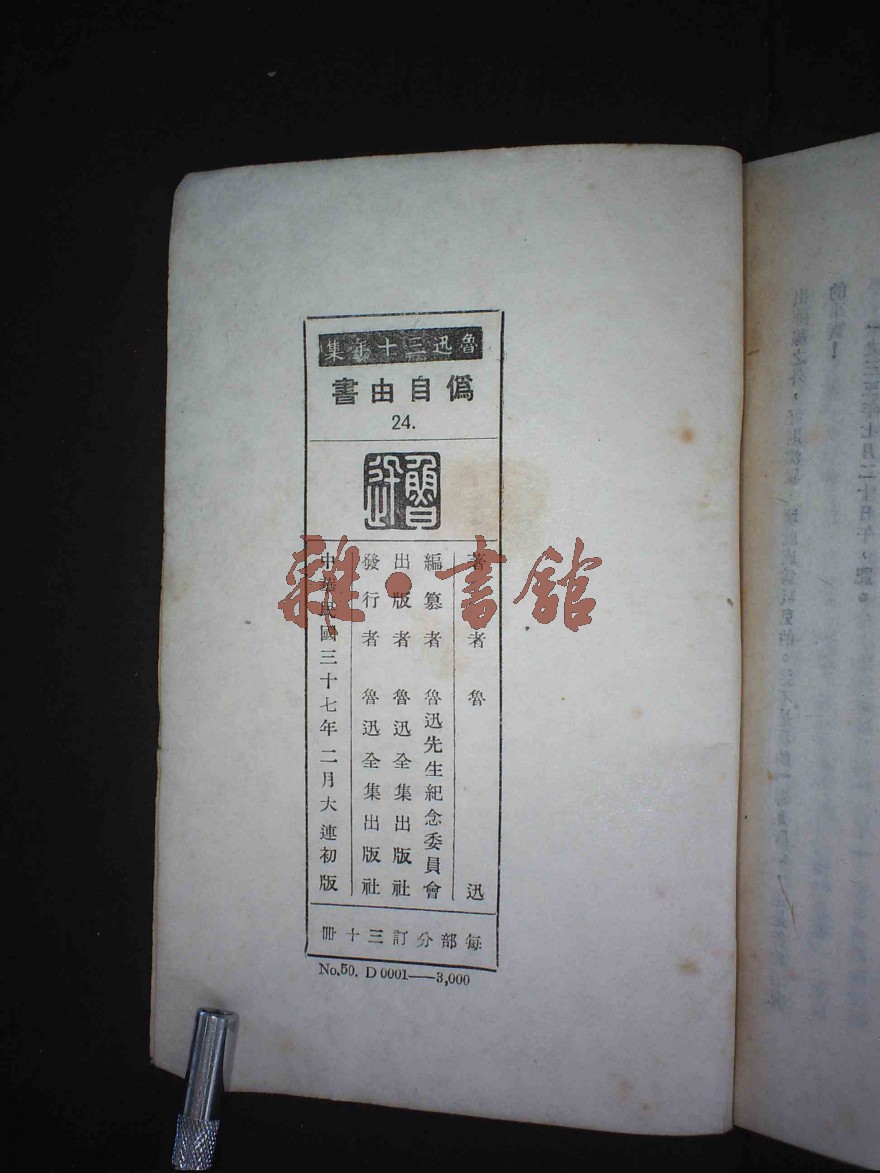 魯迅三十年集
僞自由書
24.
魯迅
著者 魯迅
編纂者 魯迅先生紀念委員會
出版者 魯迅全集出版社
發行者 魯迅全集出版社
中華民國三十七年二月大連初版
每部分訂三十冊
No.50. D 0001——3,000
雜·書館